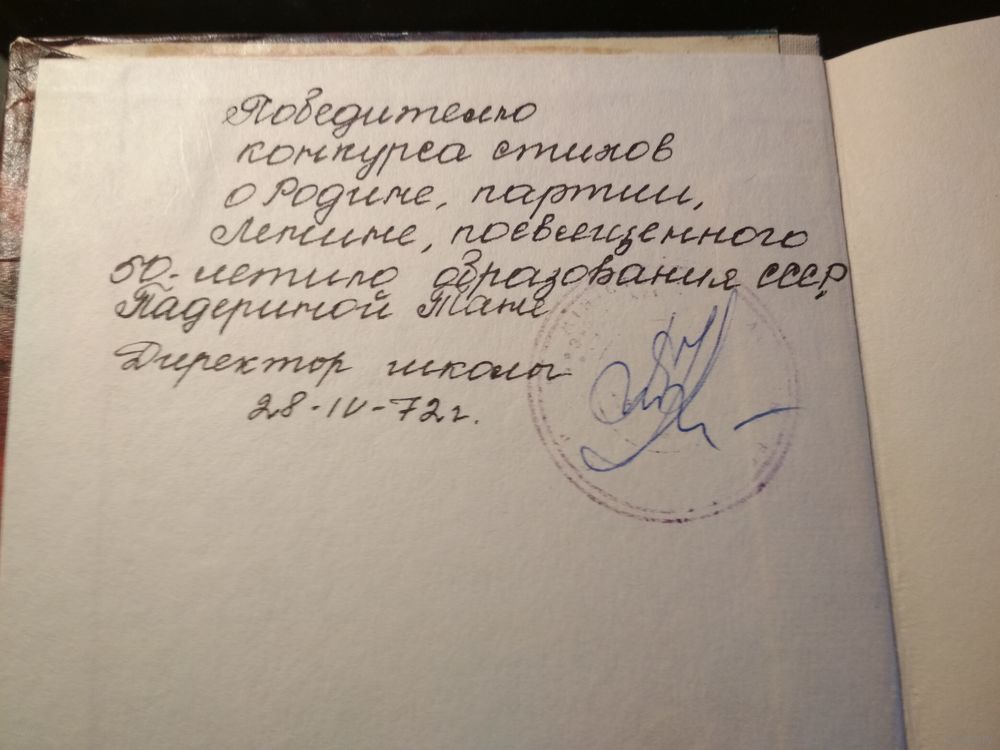 Победителю
конкурса стихов
о Родине, партии,
Ленине, посвященного
50-летию образования СССР,
Падериной Тане
Директор школы
28-IV-72г.